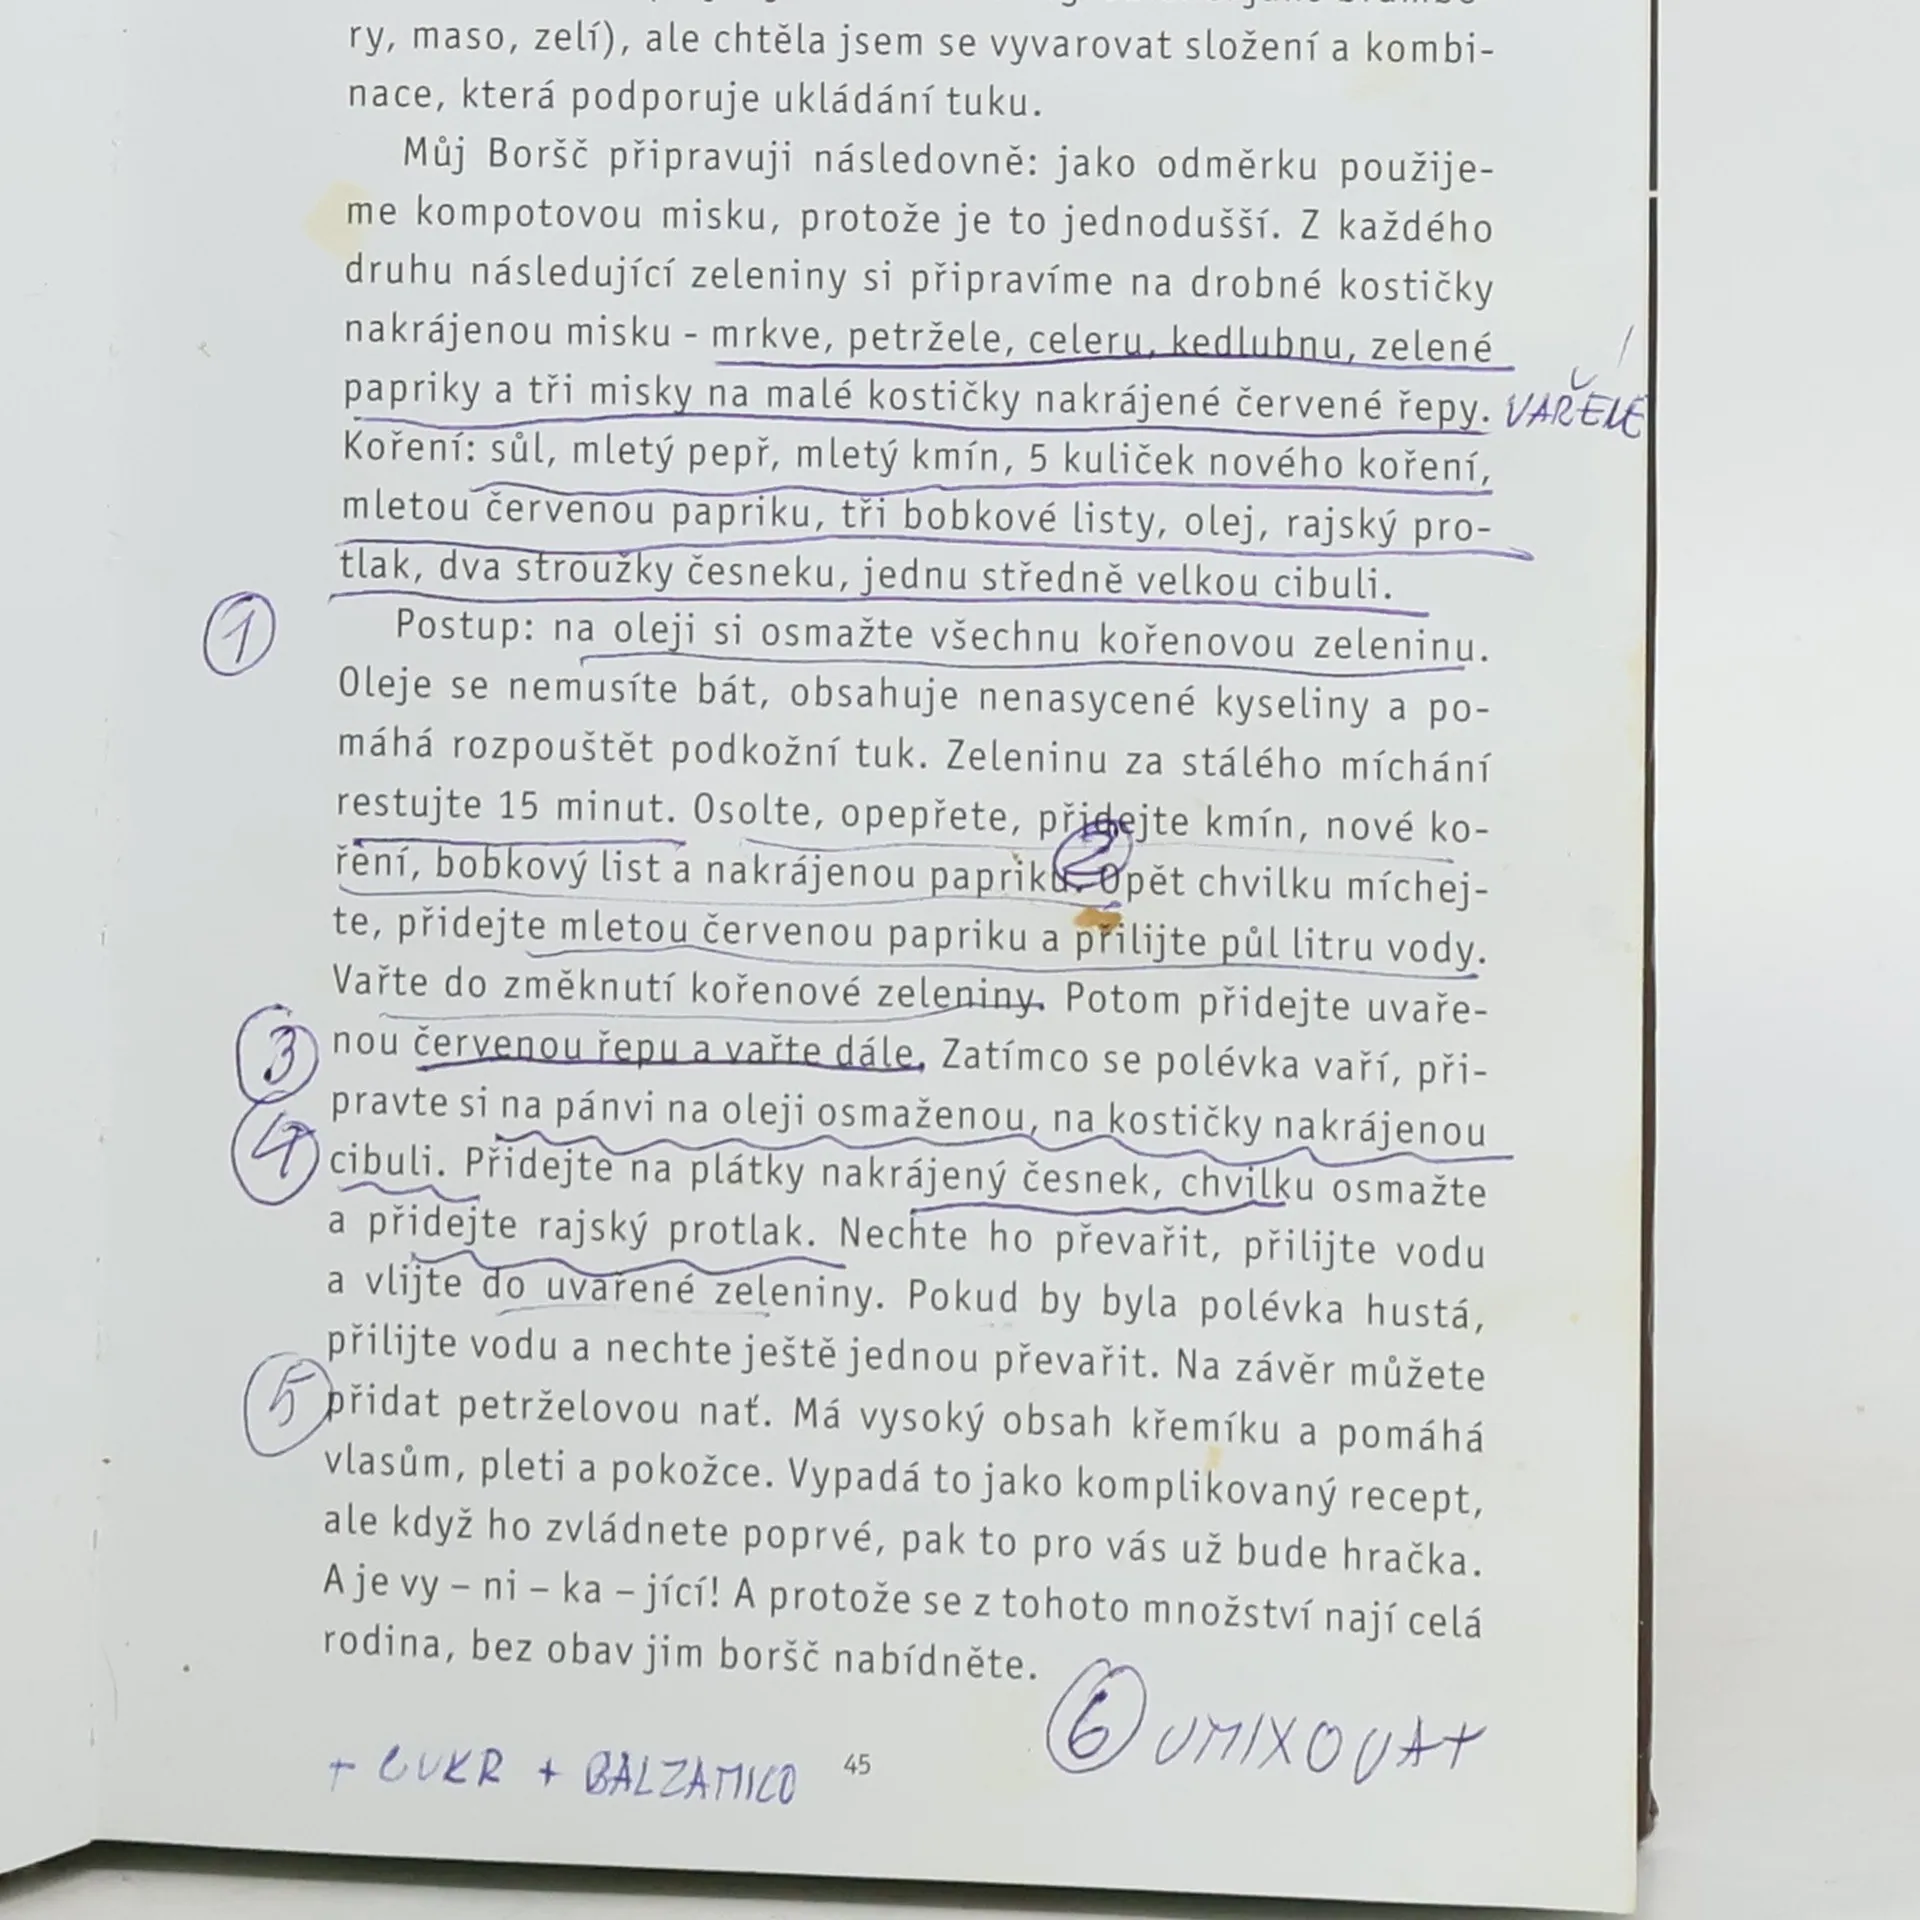 ry, maso, zelí), ale chtěla jsem se vyvarovat složení a kombi-
nace, která podporuje ukládání tuku.
Můj Boršč připravuji následovně: jako odměrku použije-
me kompotovou misku, protože je to jednodušší. Z každého
druhu následující zeleniny si připravíme na drobné kostičky
nakrájenou misku - mrkve, petržele, celeru, kedlubnu, zelené
papriky a tři misky na malé kostičky nakrájené červené řepy. VAŘELÉ
Koření: sůl, mletý pepř, mletý kmín, 5 kuliček nového koření,
mletou červenou papriku, tři bobkové listy, olej, rajský pro-
tlak, dva stroužky česneku, jednu středně velkou cibuli.
1 Postup: na oleji si osmažte všechnu kořenovou zeleninu.
Oleje se nemusíte bát, obsahuje nenasycené kyseliny a po-
máhá rozpouštět podkožní tuk. Zeleninu za stálého míchání
restujte 15 minut. Osolte, opepřete, přidejte kmín, nové ko-
ření, bobkový list a nakrájenou papriku. 2 Opět chvilku míchej-
te, přidejte mletou červenou papriku a přilijte půl litru vody.
Vařte do změknutí kořenové zeleniny. Potom přidejte uvaře-
3 nou červenou řepu a vařte dále. Zatímco se polévka vaří, při-
pravte si na pánvi na oleji osmaženou, na kostičky nakrájenou
4 cibuli. Přidejte na plátky nakrájený česnek, chvilku osmažte
a přidejte rajský protlak. Nechte ho převařit, přilijte vodu
a vlijte do uvařené zeleniny. Pokud by byla polévka hustá,
přilijte vodu a nechte ještě jednou převařit. Na závěr můžete
5 přidat petrželovou nať. Má vysoký obsah křemíku a pomáhá
vlasům, pleti a pokožce. Vypadá to jako komplikovaný recept,
ale když ho zvládnete poprvé, pak to pro vás už bude hračka.
A je vy – ni – ka – jící! A protože se z tohoto množství nají celá
rodina, bez obav jim boršč nabídněte.
6 UMIXOVAT
+ CUKR + BALZAMICO 45